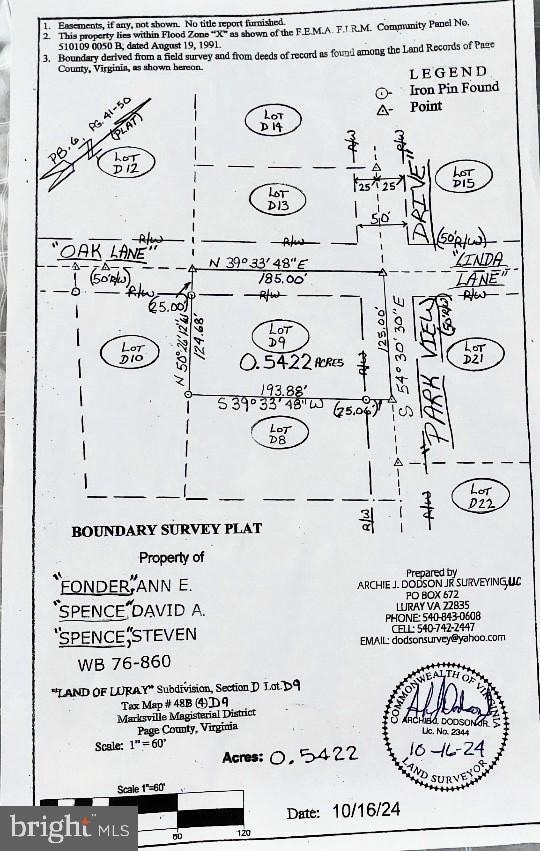 1. Easements, if any, not shown. No title report furnished.
2. This property lies within Flood Zone "X" as shown of the F.E.M.A. F.I.R.M. Community Panel No.
510109 0050 B, dated August 19, 1991.
3. Boundary derived from a field survey and from deeds of record as found among the Land Records of Page
County, Virginia, as shown hereon.
LEGEND
Iron Pin Found
Point
PB. 6 PG. 41-50
(PLAT)
LOT
D12
LOT
D14
LOT
D13
LOT
D15
R/W
R/W
25' 25'
50'
"PARK VIEW DRIVE"
(50'R/W)
"OAK LANE"
(50'R/W)
R/W
R/W
(50'R/W)
"LINDA
LANE"
R/W
N 39° 33' 48" E
185.00'
R/W
R/W
R/W
(25.00')
N 50° 26' 12" W
124.68'
LOT
D9
0.5422 ACRES
R/W
125.00'
S 54° 30' 30" E
LOT
D10
LOT
D21
193.88'
S 39° 33' 48" W
(25.06')
LOT
D8
LOT
D22
R/W
R/W
BOUNDARY SURVEY PLAT
Property of
"FONDER," ANN E.
"SPENCE," DAVID A.
"SPENCE," STEVEN
WB 76-860
"LAND OF LURAY" Subdivision, Section D Lot D9
Tax Map # 48B (4) D9
Marksville Magisterial District
Page County, Virginia
Scale: 1" = 60'
Acres: 0.5422
Prepared by
ARCHIE J. DODSON JR SURVEYING, LLC
PO BOX 672
LURAY VA 22835
PHONE: 540-843-0608
CELL: 540-742-2447
EMAIL: dodsonsurvey@yahoo.com
COMMONWEALTH OF VIRGINIA
ARCHIE J. DODSON JR.
Lic. No. 2344
10-16-24
LAND SURVEYOR
Scale 1"=60'
60 120
Date: 10/16/24
bright MLS